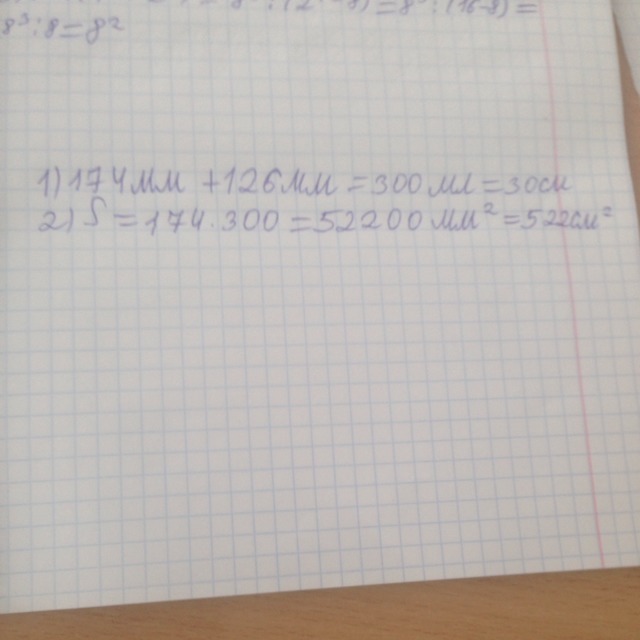 8³:8=8²
1) 174мм + 126мм = 300мм = 30см
2) S = 174 · 300 = 52200 мм² = 522см²